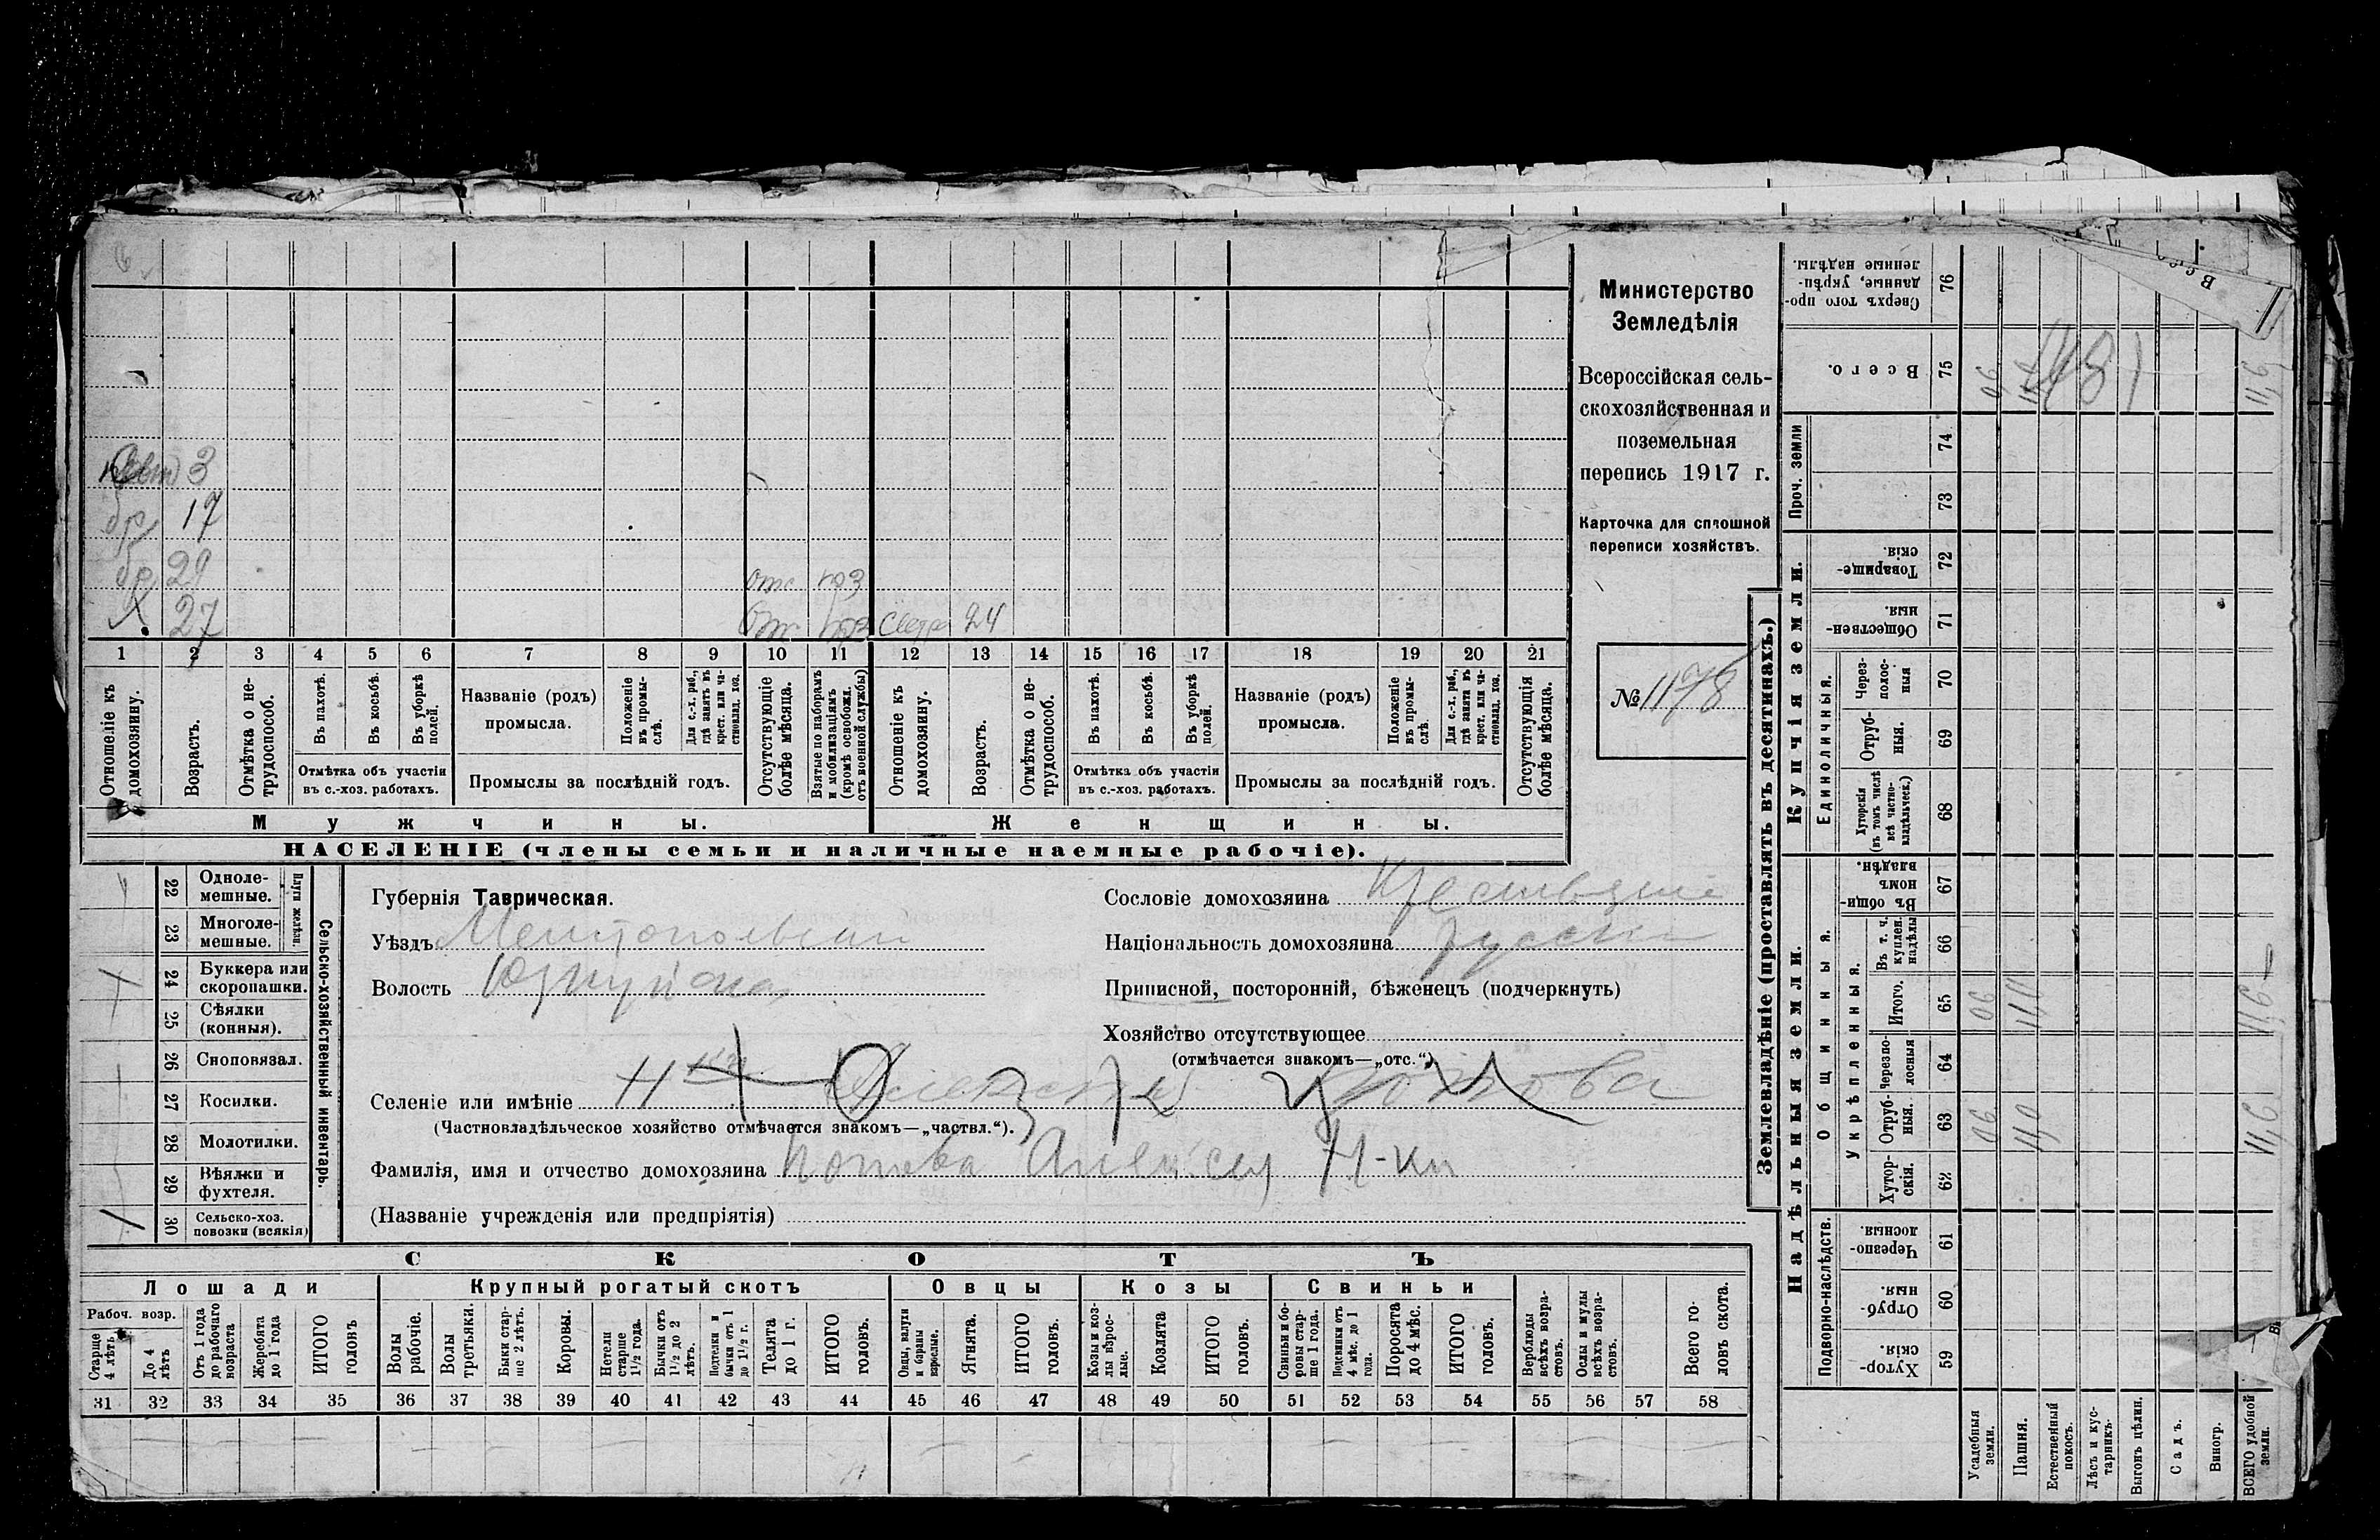 Министерство
Земледѣлія
Всероссійская сель-
скохозяйственная и
поземельная
перепись 1917 г.
Карточка для сплошной
переписи хозяйствъ.
№ 1178
3
бр 17
бр 29 отс
Х 27 отс сестра 24
1 2 3 4 5 6 7 8 9 10 11 12 13 14 15 16 17 18 19 20 21
Отношеніе къ домохозяину.
Возрастъ.
Отмѣтка о не-трудоспособ.
Въ пахотѣ.
Въ косьбѣ.
Въ уборкѣ полей.
Отмѣтка объ участіи
въ с.-хоз. работахъ.
Названіе (родъ)
промысла.
Положеніе въ промы-слѣ.
Для с.-х. раб., гдѣ занятъ въ крест. или ча-стновлад. хоз.
Промыслы за послѣдній годъ.
Отсутствующіе болѣе мѣсяца.
Взятые по наборамъ и мобилизаціямъ (кромѣ освобожд. отъ военной службы)
Отношеніе къ домохозяину.
Возрастъ.
Отмѣтка о не-трудоспособ.
Въ пахотѣ.
Въ косьбѣ.
Въ уборкѣ полей.
Отмѣтка объ участіи
въ с.-хоз. работахъ.
Названіе (родъ)
промысла.
Положеніе въ промы-слѣ.
Для с.-х. раб., гдѣ занята въ крест. или ча-стновлад. хоз.
Промыслы за послѣдній годъ.
Отсутствующія болѣе мѣсяца.
Мужчины. Женщины.
НАСЕЛЕНІЕ (члены семьи и наличные наемные рабочіе).
Сельско-хозяйственный инвентарь.
Плуги желѣзн.
22 Одноле-мешные.
23 Многоле-мешные.
24 Буккера или скоропашки.
25 Сѣялки (конныя).
26 Сноповязал.
27 Косилки.
28 Молотилки.
29 Вѣялки и фухтеля.
30 Сельско-хоз. повозки (всякія)
Губернія Таврическая.
Уѣздъ Мелитопольскій
Волость
Сословіе домохозяина Крестьянe
Національность домохозяина русскі
Приписной, посторонній, бѣженецъ (подчеркнуть)
Хозяйство отсутствующее
(отмѣчается знакомъ—„отс.“)
Селеніе или имѣніе
(Частновладѣльческое хозяйство отмѣчается знакомъ—„частвл.“).
Фамилія, имя и отчество домохозяина Попова Алексѣй Н-ки
(Названіе учрежденія или предпріятія)
СКОТЪ
Лошади Крупный рогатый скотъ Овцы Козы Свиньи
Рабоч. возр.
Старше 4 лѣтъ
До 4 лѣтъ
Отъ 1 года до рабочаго возраста
Жеребята до 1 года
ИТОГО головъ
Волы рабочіе.
Волы третьяки.
Быки стар-ше 2 лѣтъ.
Коровы.
Нетели старше 1 1/2 года.
Бычки отъ 1 1/2 до 2 лѣтъ.
Подтелки и бычки отъ 1 до 1 1/2 г.
Телята до 1 г.
ИТОГО головъ.
Овцы, валухи и бараны взрослые.
Ягнята.
ИТОГО головъ.
Козы и коз-лы взрос-лые.
Козлята
ИТОГО головъ.
Свиньи и бо-ровы стар-ше 1 года.
Подсвинки отъ 4 мѣс. до 1 года.
Поросята до 4 мѣс.
ИТОГО головъ.
Верблюды всѣхъ возра-стовъ.
Ослы и мулы всѣхъ возра-стовъ.
Всего го-ловъ скота.
31 32 33 34 35 36 37 38 39 40 41 42 43 44 45 46 47 48 49 50 51 52 53 54 55 56 57 58
Землевладѣніе (проставлять въ десятинахъ.)
Надѣльныя земли. Купчія земли. Проч. земли
Подворно-наслѣдств.
Общинныя.
Укрѣпленныя.
Единоличныя.
59 Хутор-скія.
60 Отруб-ныя.
61 Черезпо-лосныя
62 Хутор-скія.
63 Отруб-ныя. 06 11,0 11,6
64 Черезпо-лосныя
65 Итого. 06 11,0 11,6
66 Въ т. ч. куплен. надѣлы
67 Въ общи-номъ владѣн.
68 Хуторскія (въ томъ числѣ всѣ частно-владѣльческ.)
69 Отруб-ныя.
70 Через-полос-ныя
71 Обществен-ныя.
72 Товарище-скія.
73
74
75 Всего. 06 11,6
76 Сверхъ того про-данные, укрѣп-ленные надѣлы.
Усадебныя земли.
Пашня.
Естественный покосъ.
Лѣсъ и кус-тарникъ.
Выгонъ цѣлин.
Садъ.
Виногр.
ВСЕГО удобной земли.